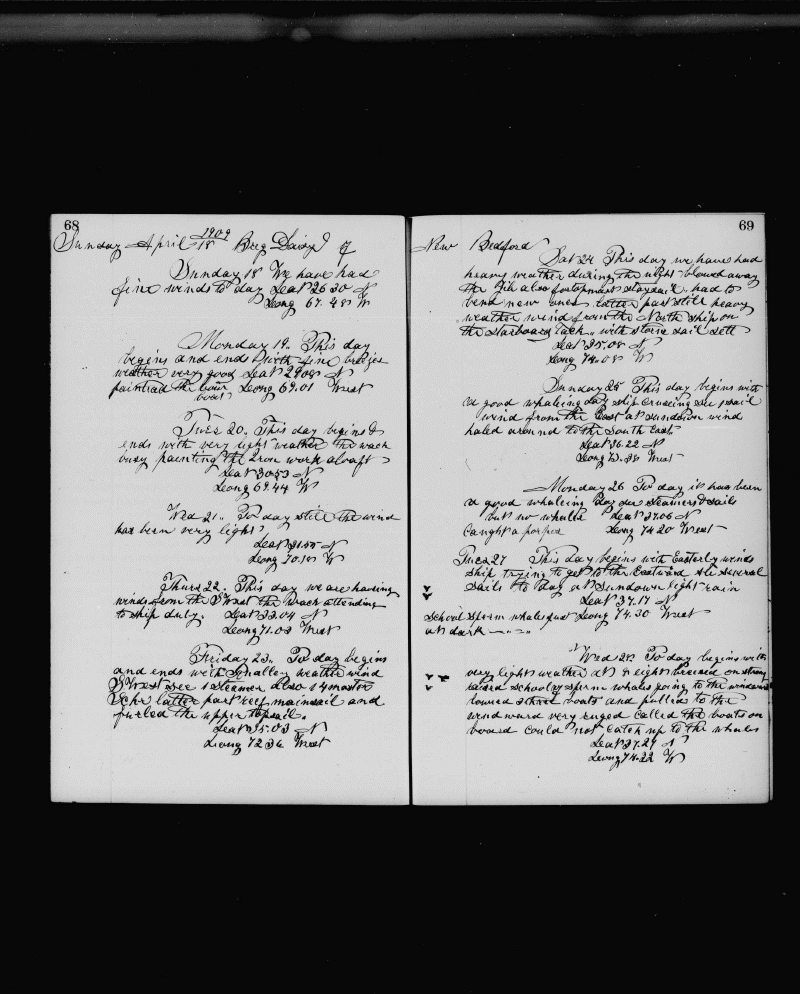 68
1909
Sunday April 18 Brig Daisy of
Sunday 18 We have had
fine winds to day Leat 26 30 N
Leong 67.48 W
Monday 19.. This day
begins and ends with fine breezes
weather very good Leat 29 08 N
paintead the bow Leong 69.01 West
boat
Tues 20. This day begins &
ends with very light weather the wach
busy painting the Iron work alooft
Leat 30 53 N
Leong 69.44 W
Wed 21.. To day still the wind
has been very light
Leat 31.55 N
Leong 70.18 W
Thurs 22. This day we are having
winds from the S West the wach attending
to ship duty. Leat 33.04 N
Leong 71.03 West
Friday 23.. To day begins
and ends with Squalley weather wind
S West see 1 Steamer also 1 4 master
Schr latter part reef mainsail and
furled the upper topsail.
Leat 35.03 N
Leong 72 36 West
69
New Bedford
Sat 24 This day we have had
heavy weather during the night blowed away
the Jib also fortopmast staysail.. had to
bend new ones.. latter part still heavy
weather wind from the North Ship on
the starboard tack.. with storm sail sett
Leat 35.08 N
Leong 74.08 W
Sunday 25 This day begins with
a good whaleing day ship cruesing see 1 sail
wind from the East at sundown wind
haled around to the South East
Leat 36.22 N
Leong 73.38 West
Monday 26 To day it has been
a good whaleing day see steamers & sails
but no whales Leat 37.06 N
Caught a porpus Leong 74 20 West
Tues 27 This day begins with Easterly winds
ship trying to get to the Eastward see several
sails to day at Sundown light rain
Leat 37.17 N
School Sperm whales past Leong 74.30 West
at dark
Wed 28 To day begins with
very light weather at 8 eight breesed on strong
raised school of sperm whales going to the windward
lowred three boats and pulled to the
wind ward very ruged called the boats on
board could not catch up to the whales
Leat 37.27 N
Leong 74.22 W